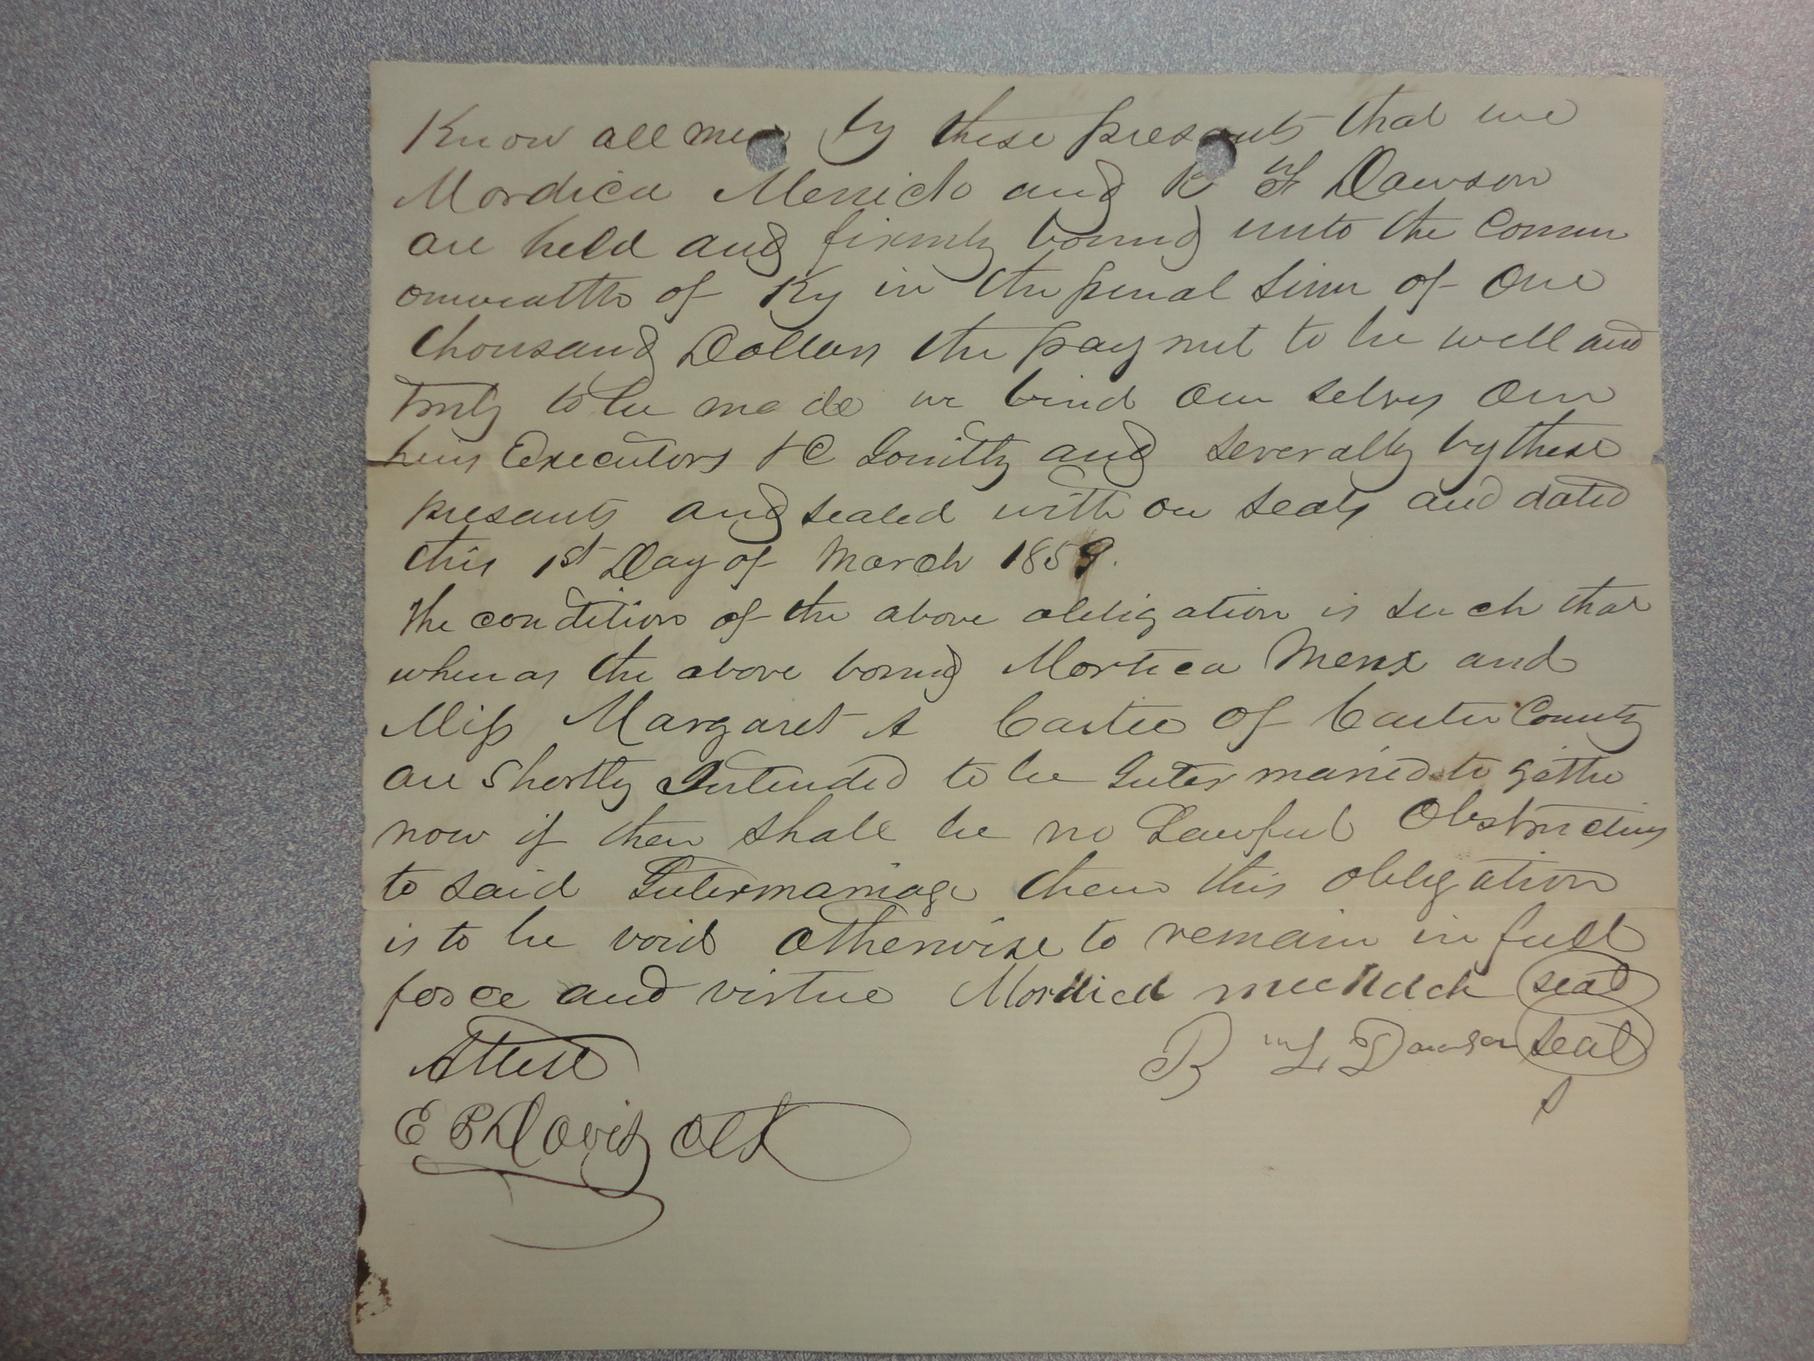 Know all men by these presants that we
Mordica and B F Dawson
are held and firmly bound unto the Comm
onwealth of Ky in the penal Sum of One
thousand Dollars the payment to be well and
truly to be made we bind our selves Our
heirs Executors &C Jointly and Severally by these
presants and sealed with our seals and dated
this 1st Day of March 1859.
The condition of the above obligation is such that
whereas the above bound and
Miss Margaret A Castee of Carter County
are Shortly Intended to be Inter maried to gether
now if ther shall be no Lawful Obstructions
to said Intermariage then this obligation
is to be void otherwise to remain in full
force and virtue Mordica seal
B Dawson seal
Attest
E P Davis Clk